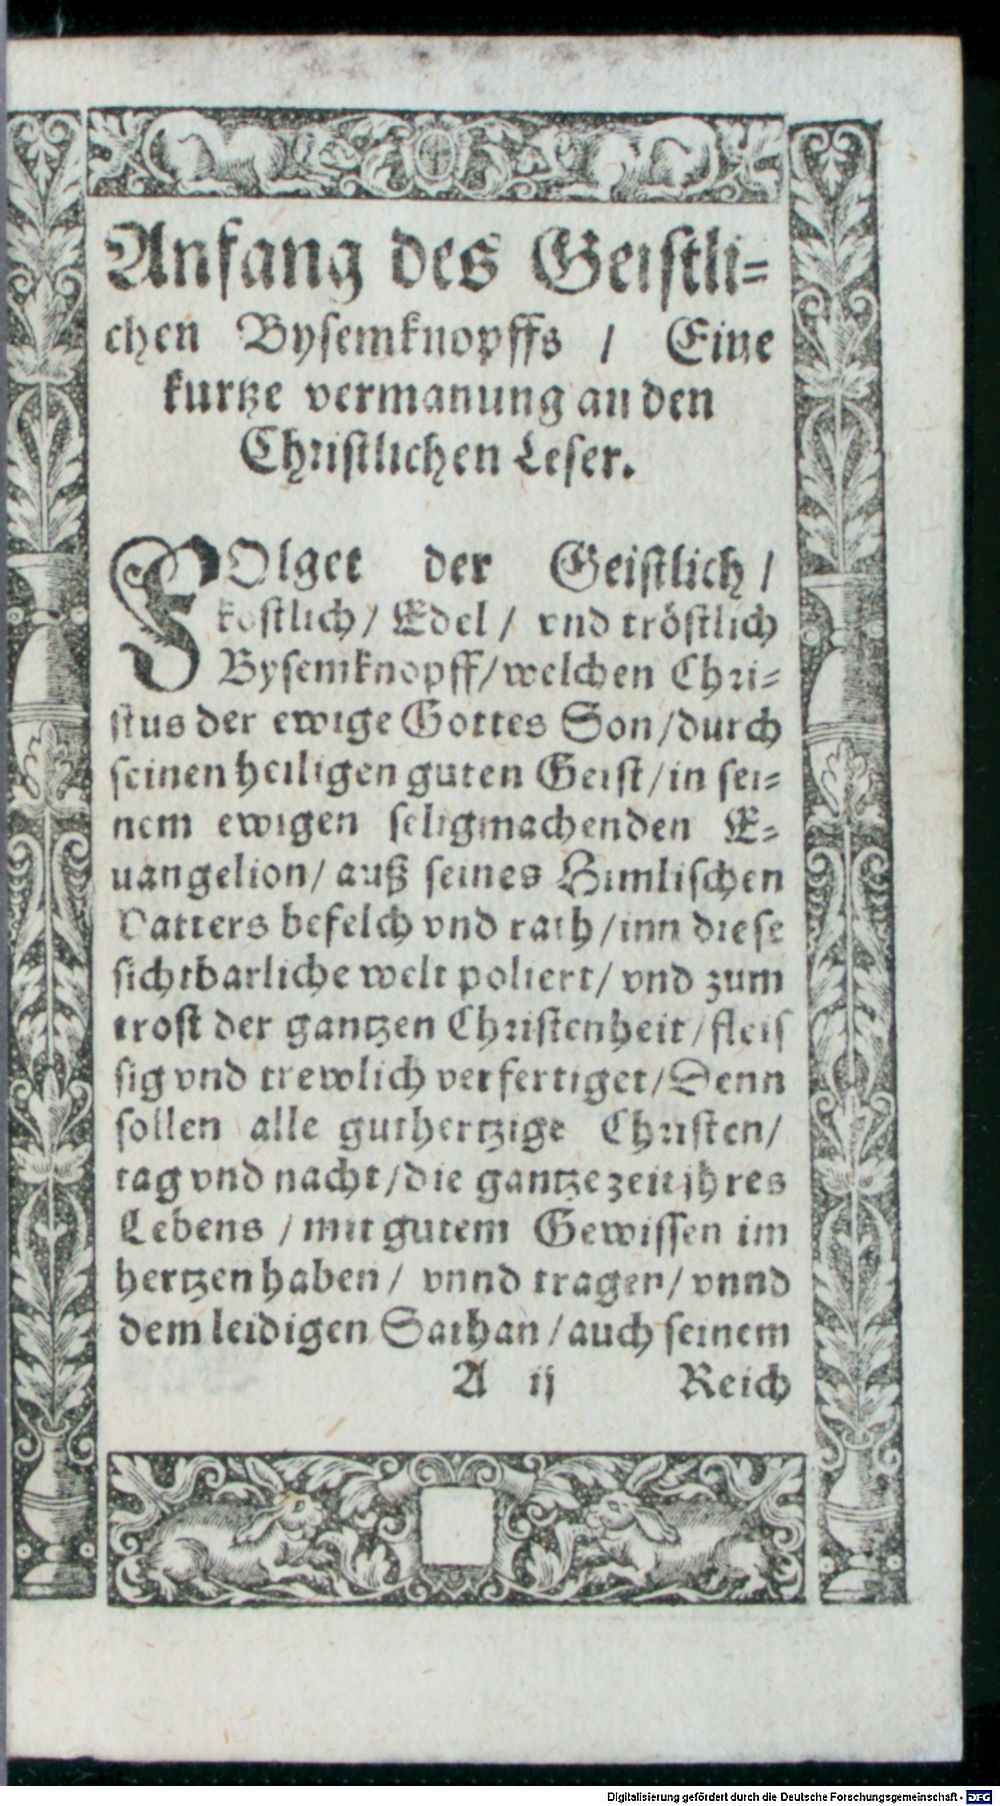 Anfang des Geistli=
chen Bysemknopffs / Eine
kurtze vermanung an den
Christlichen Leser.
FOlget der Geistlich /
kostlich / Edel / vnd tröstlich
Bysemknopff / welchen Chri=
stus der ewige Gottes Son / durch
seinen heiligen guten Geist / in sei=
nem ewigen seligmachenden E=
uangelion / auß seines Himlischen
Vatters befelch vnd rath / inn diese
sichtbarliche welt poliert / vnd zum
trost der gantzen Christenheit / fleis
sig vnd trewlich verfertiget / Denn
sollen alle guthertzige Christen /
tag vnd nacht / die gantze zeit jhres
Lebens / mit gutem Gewissen im
hertzen haben / vnnd tragen / vnnd
dem leidigen Sathan / auch seinem
A ij Reich
Digitalisierung gefördert durch die Deutsche Forschungsgemeinschaft - DFG